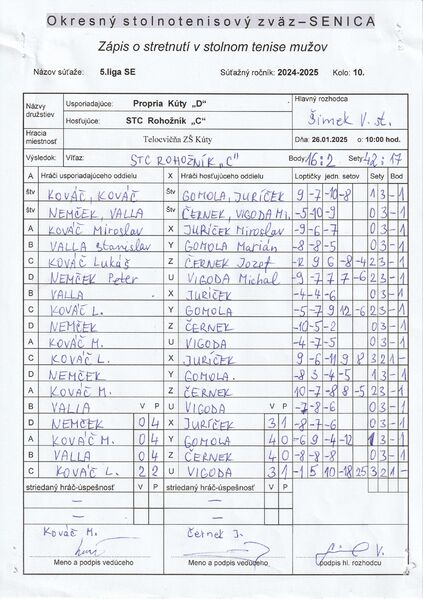 Okresný stolnotenisový zväz–SENICA
Zápis o stretnutí v stolnom tenise mužov
Názov súťaže: 5.liga SE Súťažný ročník: 2024-2025 Kolo: 10.
Názvy družstiev Usporiadajúce: Propria Kúty „D" Hlavný rozhodca
Hosťujúce: STC Rohožník „C" Šimek V. st.
Hracia miestnosť Telocvičňa ZŠ Kúty Dňa: 26.01.2025 o: 10:00 hod.
Výsledok: Víťaz: STC ROHOŽNÍK „C" Body 16:2 Sety 42:17
A Hráči usporiadajúceho oddielu X Hráči hosťujúceho oddielu Loptičky jedn. setov Sety Bod
štv KOVÁČ, KOVÁČ Štv GOMOLA, JURÍČEK 9 -7 -10 -8 1 3 - 1
štv NEMČEK, VALLA Štv ČERNEK, VIGODA Mi. -5 -10 -9 0 3 - 1
A KOVÁČ Miroslav X JURÍČEK Miroslav -9 -6 -7 0 3 - 1
B VALLA Stanislav Y GOMOLA Marián -8 -8 -5 0 3 - 1
C KOVÁČ Lukáš Z ČERNEK Jozef 9 6 -8 -4 2 3 - 1
D NEMČEK Peter U VIGODA Michal -9 -7 7 -6 3 - 1
B VALLA X JURÍČEK -4 -4 -6 0 3 - 1
C KOVÁČ L. Y GOMOLA -5 -7 9 12 -6 3 - 1
D NEMČEK Z ČERNEK -10 -5 -2 0 3 - 1
A KOVÁČ M. U VIGODA -4 -7 -5 0 3 - 1
C KOVÁČ L. X JURÍČEK 9 -6 -11 9 8 3 2 1 -
D NEMČEK Y GOMOLA. -8 3 -4 -5 1 3 - 1
A KOVÁČ M. Z ČERNEK 10 -7 -8 8 -5 2 3 - 1
B VALLA V P U VIGODA V P -7 -8 -6 0 3 - 1
D NEMČEK 0 4 X JURÍČEK 3 1 -8 -7 -6 0 3 - 1
A KOVÁČ M. 0 4 Y GOMOLA 4 0 -6 9 -4 -12 1 3 - 1
B VALLA 0 4 Z ČERNEK 4 0 -8 -8 -8 0 3 - 1
C KOVÁČ L. 2 2 U VIGODA 3 1 5 10 -18 3 2 1 -
striedaný hráč-úspešnosť V P striedaný hráč-úspešnosť V P
Kováč M. Černek J.
Meno a podpis vedúceho Meno a podpis vedúceho podpis hl. rozhodcu